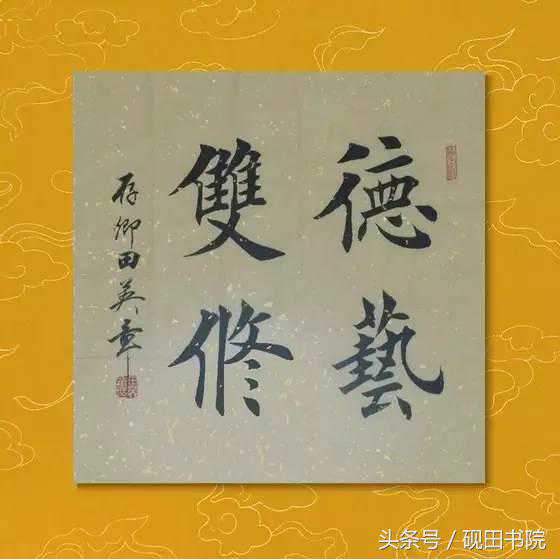 德藝
雙修
存卿田英章
头条号 / 砚田书院